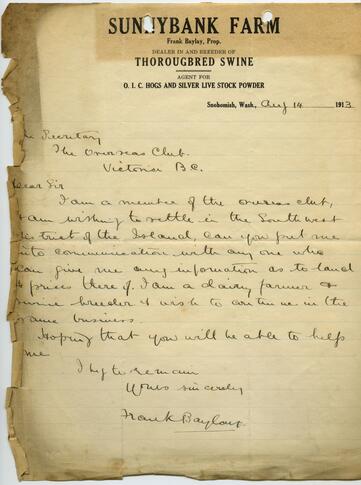 SUNNYBANK FARM
Frank Baylay, Prop.
DEALER IN AND BREEDER OF
THOROUGBRED SWINE
AGENT FOR
O. I. C. HOGS AND SILVER LIVE STOCK POWDER
Snohomish, Wash., Aug 14 1913
Secretary
The Overseas Club.
Victoria B.C.
Dear Sir
I am a member of the overseas club,
& am wishing to settle in the Southwest
district of the Island, can you put me
into communication with any one who
can give me any information as to land
& prices there of. I am a dairy farmer &
swine breeder & wish to continue in the
same business.
Hoping that you will be able to help
me
I beg to remain
Yours sincerely
Frank Baylay